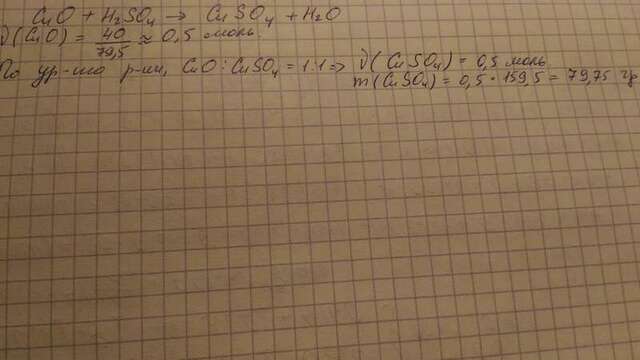 CuO + H₂SO₄ → CuSO₄ + H₂O
ν(CuO) = 40/79,5 ≈ 0,5 моль.
По ур-ию р-ии, CuO : CuSO₄ = 1:1 ⇒ ν(CuSO₄) = 0,5 моль
m(CuSO₄) = 0,5 · 159,5 = 79,75 гр